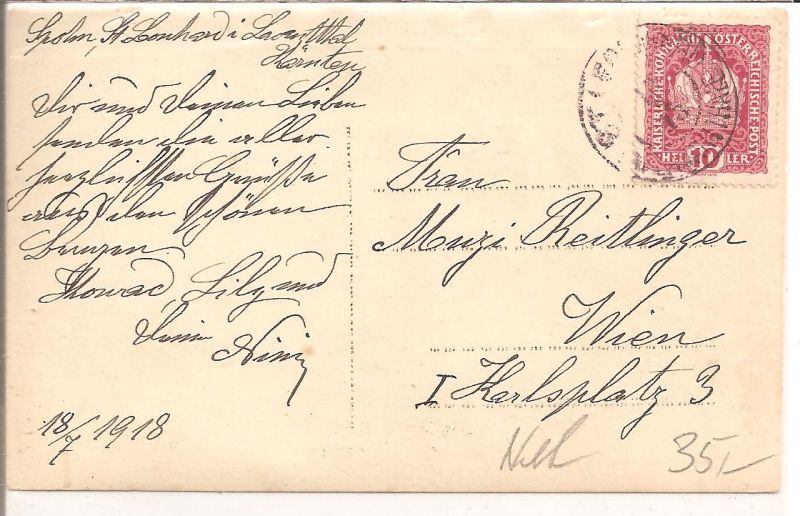 St. Leonhard i Lavanttal
Kärnten
Dir und Deinen Lieben
senden die aller
herzlichsten Grüße
aus den schönen
Bergen
Lily und
Deine
18/7 1918
KAISERLICHE KÖNIGLICHE ÖSTERREICHISCHE POST
HELLER
10
Frau
Muzi Reitlinger
Wien
I Karlsplatz 3
35,-